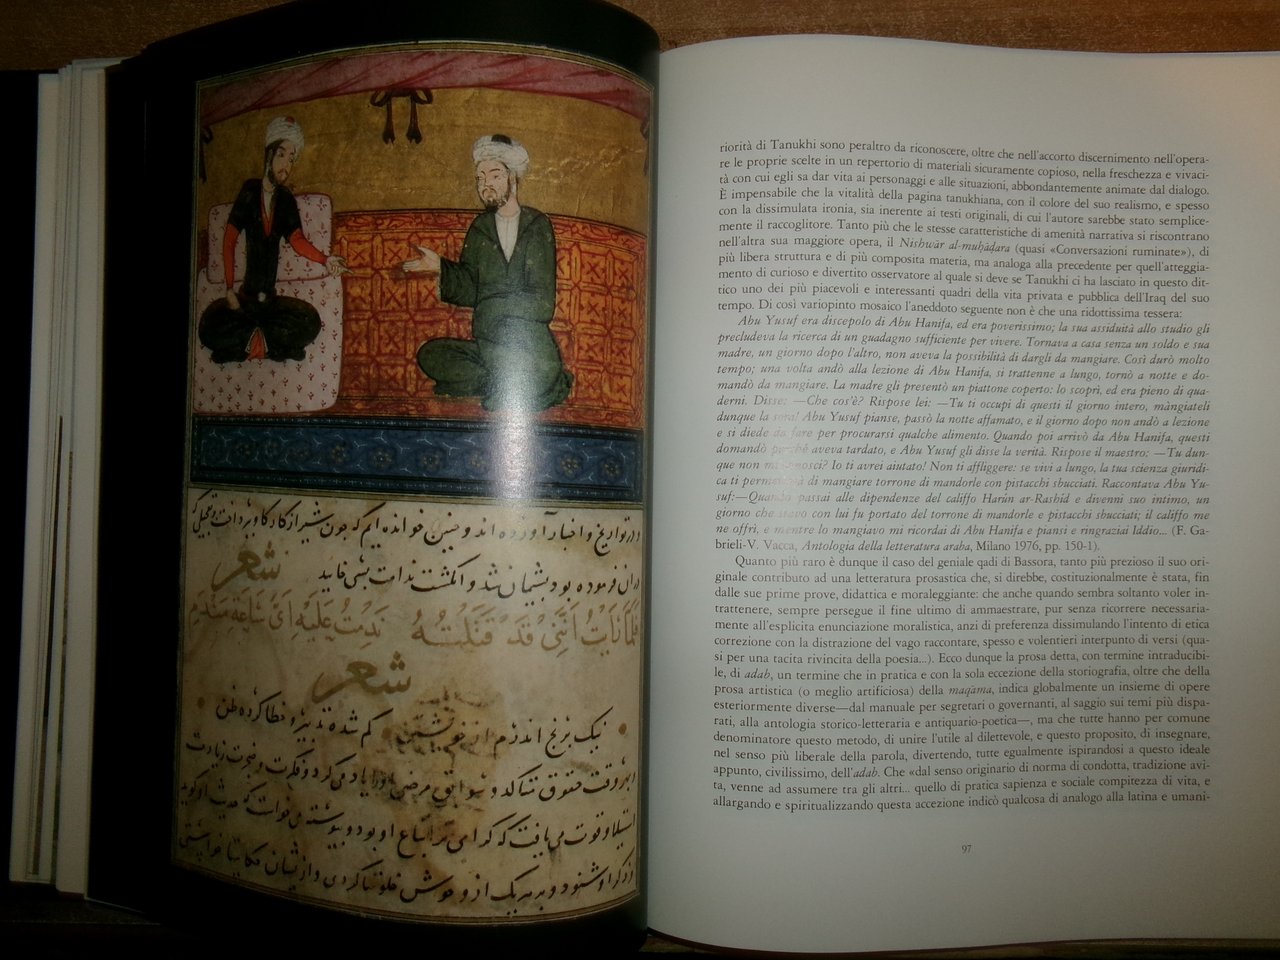 و در تواریخ و اخبار آورده اند و چنین خوانده ایم که چون شیر از کار گاو بپرداخت و تعجیلی که
در ان فرموده بود پشیمان شد و انگشت ندامت بسی خایید
شعر
نَدِمْتُ عَلَيْهِ اَیَّ سَاعَةِ مَنْدَمِ
شعر
نیک برنج اندرم از خویشتن
کم شده تدبیر و خطا کرده ظن
و بهر وقت حقوق متاکد و سوابق مرضی او را یاد می کرد و فکرت و ضجرت زیادت
استیلا و قوت می یافت که گرامی تر اتباع او بود و پیوسته می خواست که حدیث او گوید
و ذکر او شنود و بهر یک از وحوش خلوتها کردی و از ایشان حکایتها خواستی
riorità di Tanukhi sono peraltro da riconoscere, oltre che nell'accorto discernimento nell'opera-
re le proprie scelte in un repertorio di materiali sicuramente copioso, nella freschezza e vivaci-
tà con cui egli sa dar vita ai personaggi e alle situazioni, abbondantemente animate dal dialogo.
È impensabile che la vitalità della pagina tanukhiana, con il colore del suo realismo, e spesso
con la dissimulata ironia, sia inerente ai testi originali, di cui l'autore sarebbe stato semplice-
mente il raccoglitore. Tanto più che le stesse caratteristiche di amenità narrativa si riscontrano
nell'altra sua maggiore opera, il Nishwàr al-muḥàdara (quasi «Conversazioni ruminate»), di
più libera struttura e di più composita materia, ma analoga alla precedente per quell'atteggia-
mento di curioso e divertito osservatore al quale si deve se Tanukhi ci ha lasciato in questo dit-
tico uno dei più piacevoli e interessanti quadri della vita privata e pubblica dell'Iraq del suo
tempo. Di così variopinto mosaico l'aneddoto seguente non è che una ridottissima tessera:
Abu Yusuf era discepolo di Abu Hanifa, ed era poverissimo; la sua assiduità allo studio gli
precludeva la ricerca di un guadagno sufficiente per vivere. Tornava a casa senza un soldo e sua
madre, un giorno dopo l'altro, non aveva la possibilità di dargli da mangiare. Così durò molto
tempo; una volta andò alla lezione di Abu Hanifa, si trattenne a lungo, tornò a notte e do-
mandò da mangiare. La madre gli presentò un piattone coperto: lo scoprì, ed era pieno di qua-
derni. Disse: —Che cos'è? Rispose lei: —Tu ti occupi di questi il giorno intero, màngiateli
dunque la sera! Abu Yusuf pianse, passò la notte affamato, e il giorno dopo non andò a lezione
e si diede da fare per procurarsi qualche alimento. Quando poi arrivò da Abu Hanifa, questi
domandò perché aveva tardato, e Abu Yusuf gli disse la verità. Rispose il maestro: —Tu dun-
que non mi conosci? Io ti avrei aiutato! Non ti affliggere: se vivi a lungo, la tua scienza giuridi-
ca ti permetterà di mangiare torrone di mandorle con pistacchi sbucciati. Raccontava Abu Yu-
suf:—Quando passai alle dipendenze del califfo Harún ar-Rashíd e divenni suo intimo, un
giorno che stavo con lui fu portato del torrone di mandorle e pistacchi sbucciati; il califfo me
ne offrì, e mentre lo mangiavo mi ricordai di Abu Hanifa e piansi e ringraziai Iddio... (F. Ga-
brieli-V. Vacca, Antologia della letteratura araba, Milano 1976, pp. 150-1).
Quanto più raro è dunque il caso del geniale qadi di Bassora, tanto più prezioso il suo ori-
ginale contributo ad una letteratura prosastica che, si direbbe, costituzionalmente è stata, fin
dalle sue prime prove, didattica e moraleggiante: che anche quando sembra soltanto voler in-
trattenere, sempre persegue il fine ultimo di ammaestrare, pur senza ricorrere necessaria-
mente all'esplicita enunciazione moralistica, anzi di preferenza dissimulando l'intento di etica
correzione con la distrazione del vago raccontare, spesso e volentieri interpunto di versi (qua-
si per una tacita rivincita della poesia...). Ecco dunque la prosa detta, con termine intraducibi-
le, di adab, un termine che in pratica e con la sola eccezione della storiografia, oltre che della
prosa artistica (o meglio artificiosa) della maqàma, indica globalmente un insieme di opere
esteriormente diverse—dal manuale per segretari o governanti, al saggio sui temi più dispa-
rati, alla antologia storico-letteraria e antiquario-poetica—, ma che tutte hanno per comune
denominatore questo metodo, di unire l'utile al dilettevole, e questo proposito, di insegnare,
nel senso più liberale della parola, divertendo, tutte egualmente ispirandosi a questo ideale
appunto, civilissimo, dell'adab. Che «dal senso originario di norma di condotta, tradizione avi-
ta, venne ad assumere tra gli altri... quello di pratica sapienza e sociale compitezza di vita, e
allargando e spiritualizzando questa accezione indicò qualcosa di analogo alla latina e umani-
97